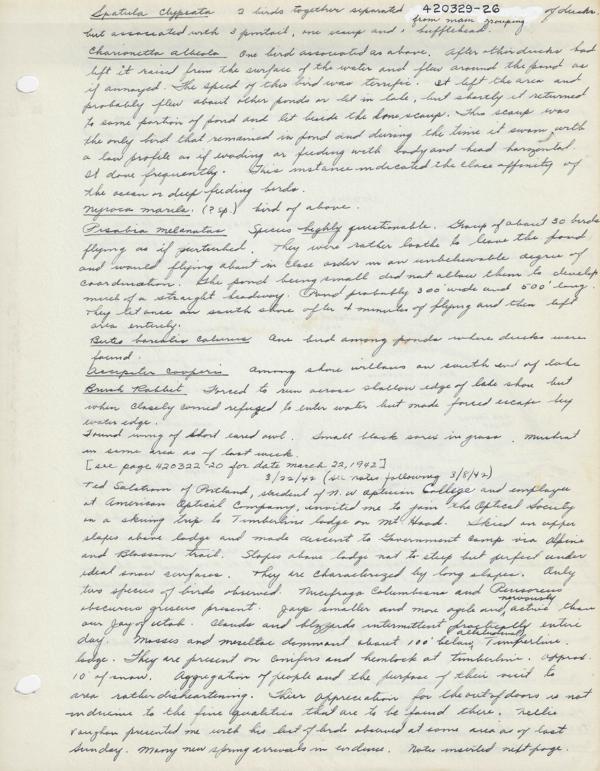 420329-26
Spatula clypeata 2 birds together separated from main grouping of ducks,
but associated with 3 pintail, one scaup and 1 bufflehead.
Charionetta albeola One bird associated as above. After other ducks had
left it raised from the surface of the water and flew around the pond as
if annoyed. The speed of this bird was terrific. It left the area and
probably flew about other ponds or lit in lake, but shortly it returned
to same portion of pond and lit beside the lone scaup. This scaup was
the only bird that remained in pond and during the time it swam with
a low profile as if wading or feeding with body and head horizontal.
It dove frequently. This instance indicated the close affinity of
the ocean or deep feeding birds.
Nyroca marila. (? sp.) bird of above.
Pisobia melanotus Species highly questionable. Group of about 30 birds
flying as if perturbed. They were rather loathe to leave the pond
and would flying about in close order in an unbelievable degree of
coordination. The pond being small did not allow them to develop
much of a straight headway. Pond probably 300' wide and 500' long.
They lit once on south shore after 4 minutes of flying and then left
area entirely.
Buteo borealis calurus One bird among ponds where ducks were
found.
Accipiter cooperii Among shore willows on south end of lake
Brush Rabbit Forced to run across shallow edge of lake shore but
when closely corned refused to enter water but made forced escape by
water edge.
Found wing of short eared owl. Small black in grass. Muskrat
in same area as of last week.
[see page 420322-20 for date March 22, 1942]
3/22/42 (see notes following 3/8/42)
Ted Salstrom of Portland, student of N.W. Optician College and employee
at American Optical Company, invited me to join the Optical Society
on a skiing trip to Timberline lodge on Mt Hood. Skied on upper
slopes above lodge and made descent to Government Camp via Alpine
and Blossom trail. Slopes above lodge not to steep but perfect under
ideal snow surfaces. They are characterized by long slopes. Only
two species of birds observed. Nucifraga Columbiana and Perisoreus
obscurus griseus present. Jays smaller and more agile and nervously active than
our jay of Utah. Clouds and blizzards intermittent practically entire
day. Mosses and dominant about 100' below altitudinally Timberline
lodge. They are present on conifers and hemlock at timberline. Approx.
10' of snow. Aggregation of people and the purpose of their visit to
area rather disheartening. Their appreciation for the out of doors is not
indicive to the fine qualities that are to be found there. Nellie
Vaughan presented me with his list of birds observed at same area as of last
Sunday. Many new spring arrivals in evidence. Notes inserted next page.